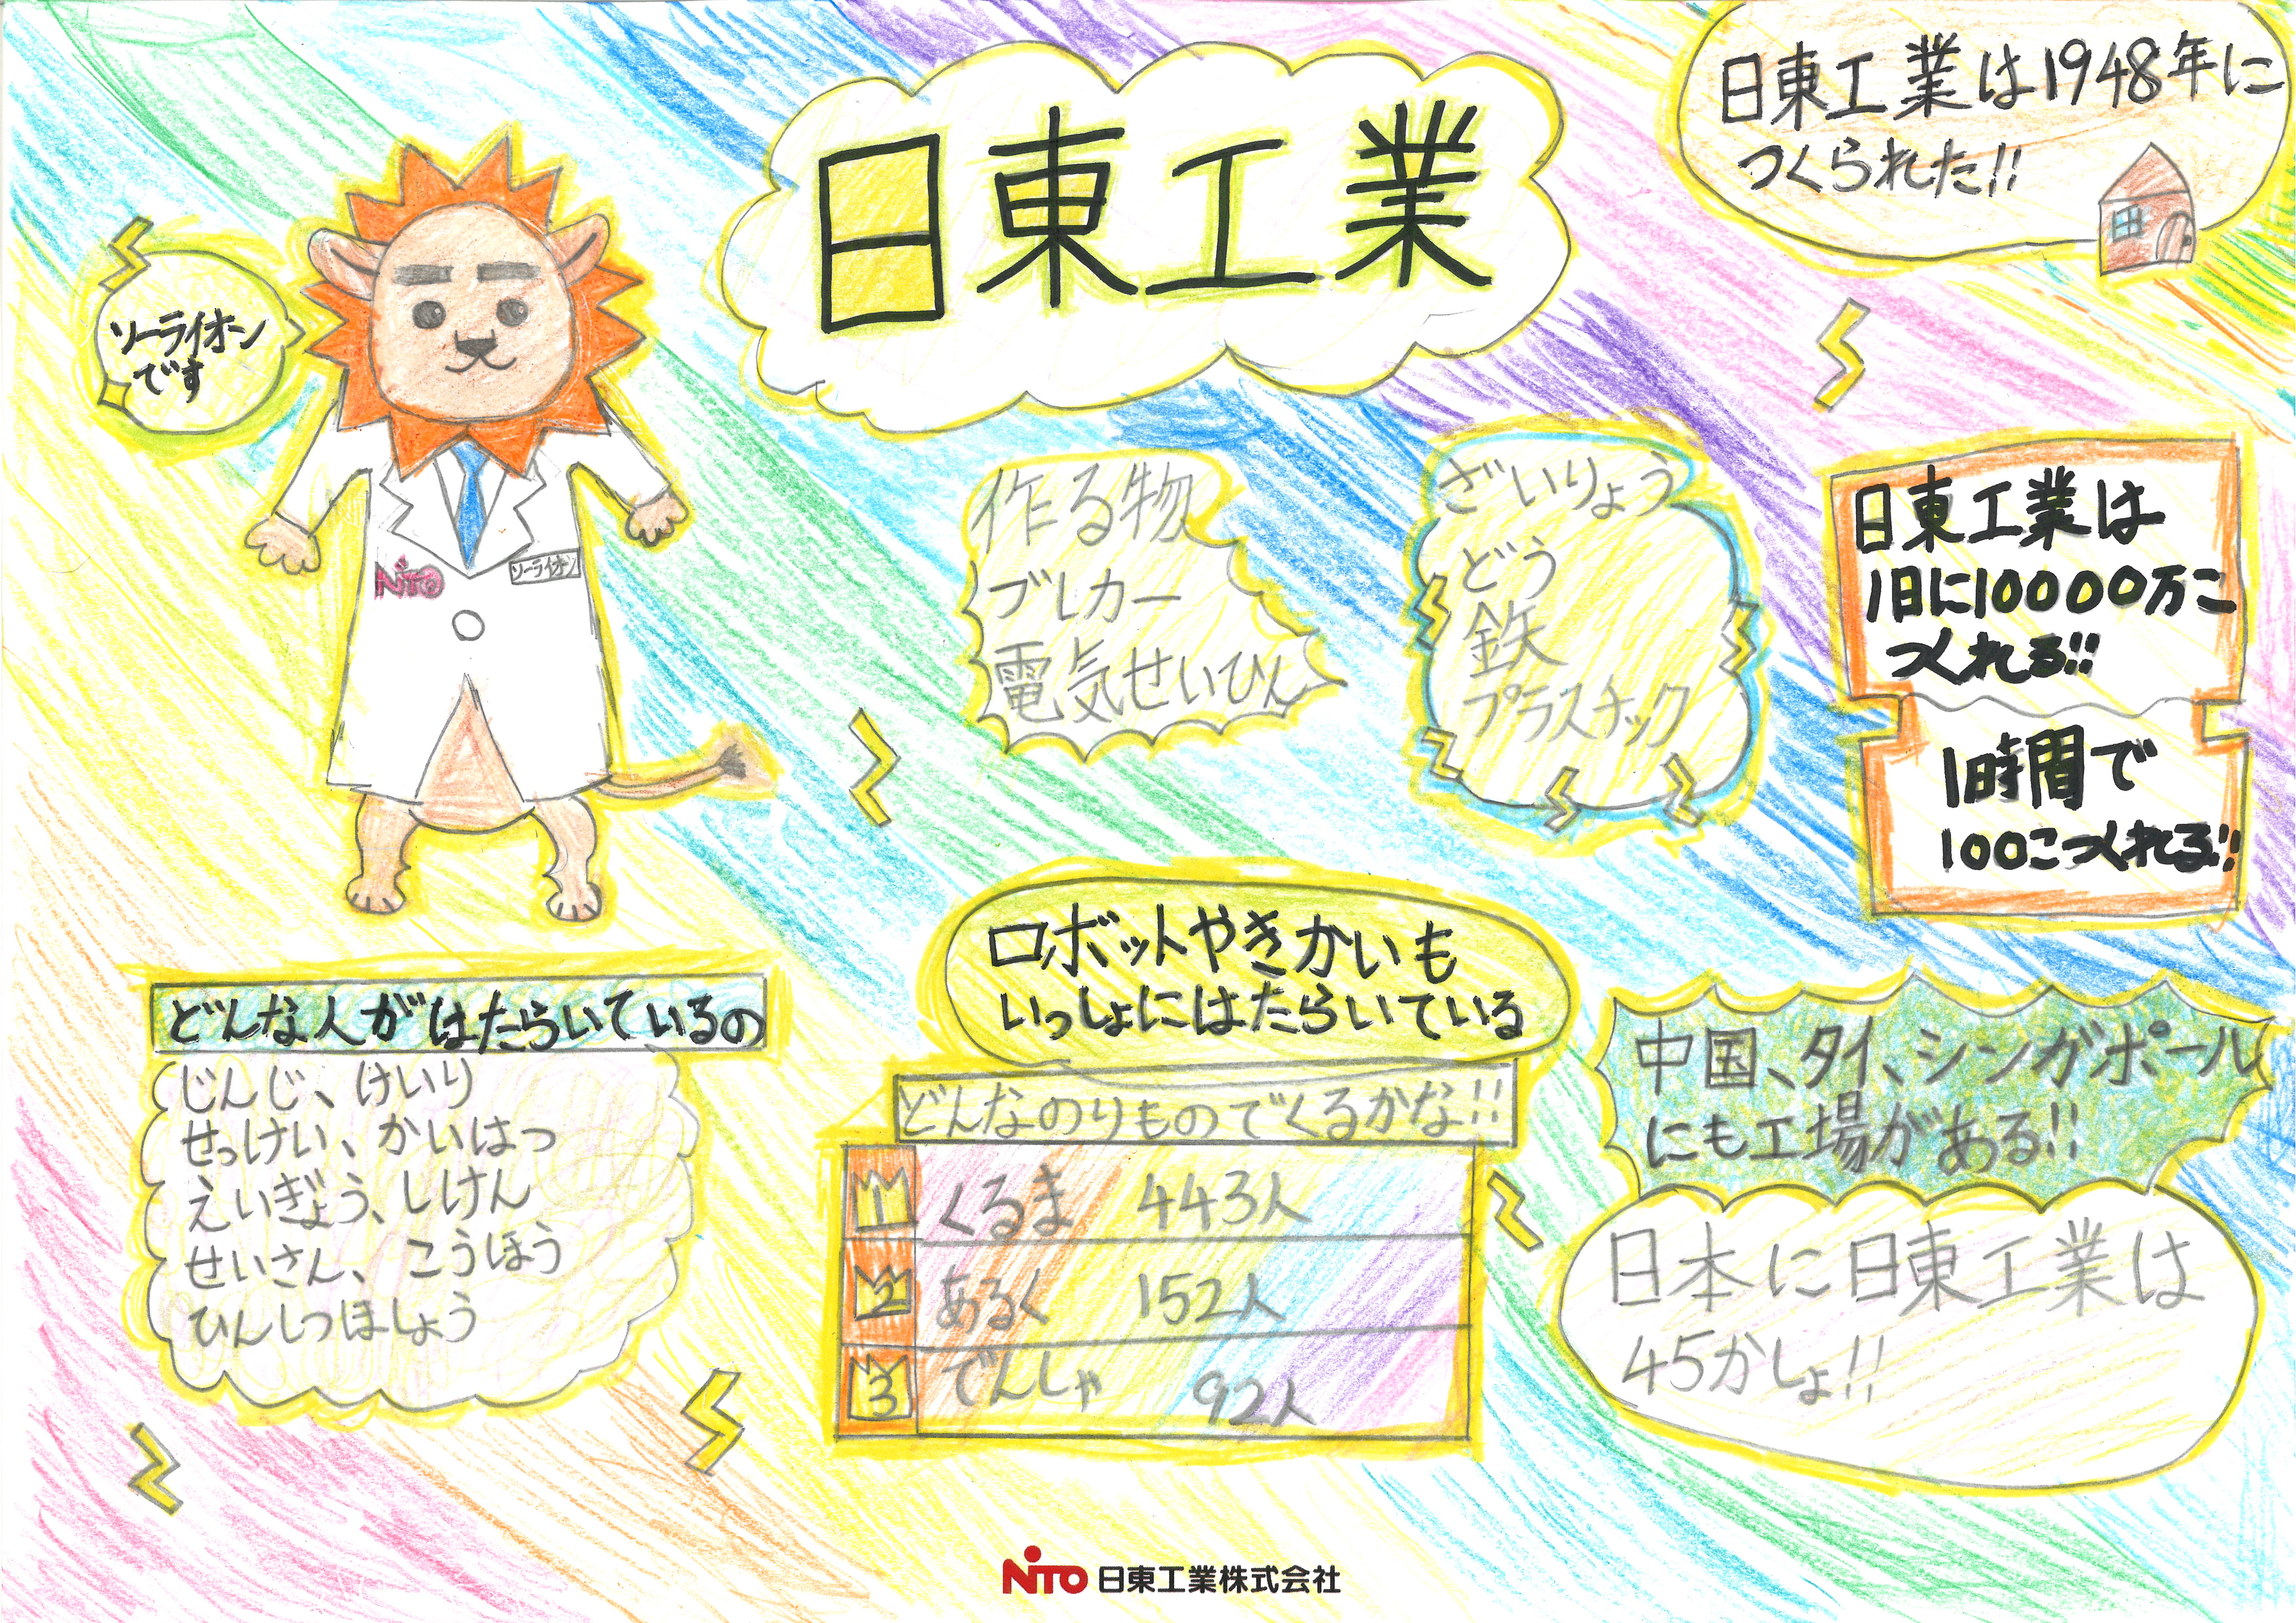 日東工業
日東工業は1948年に
つくられた!!
ソーライオン
です
NITO
ソーライオン
作る物
ブレカー
電気せいひん
ざいりょう
どう
鉄
プラスチック
日東工業は
1日に10000万こ
つくれる!!
1時間で
100こつくれる!!
どんな人がはたらいているの
じんじ、けいり
せっけい、かいはつ
えいぎょう、しけん
せいさん、こうほう
ひんしつほしょう
ロボットやきかいも
いっしょにはたらいている
どんなのりものでくるかな!!
1 くるま 443人
2 あるく 152人
3 でんしゃ 92人
中国、タイ、シンガポール
にも工場がある!!
日本に日東工業は
45かしょ!!
NITO 日東工業株式会社